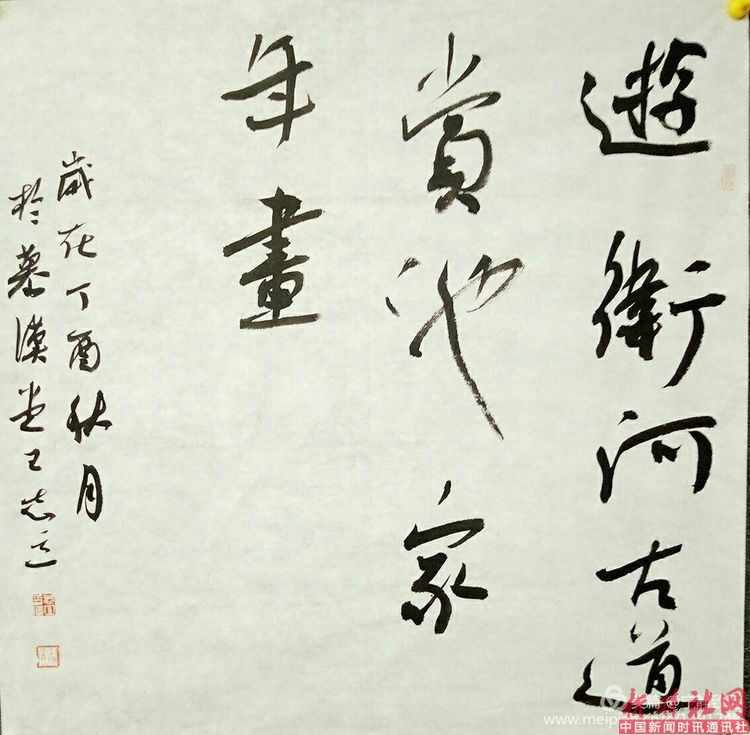 遊衛河古道
賞池家
年畫
歲在丁酉秋月
於慕漢堂王志
中国新闻时讯通讯社
www.meip